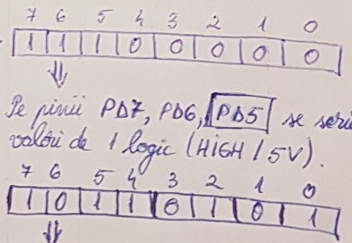 7 6 5 4 3 2 1 0
1 1 1 0 0 0 0 0
⇓
Pe pinii PD7, PD6, PD5 se scriu
valori de 1 logic (HIGH / 5V).
7 6 5 4 3 2 1 0
1 0 1 1 0 1 0 1
⇓